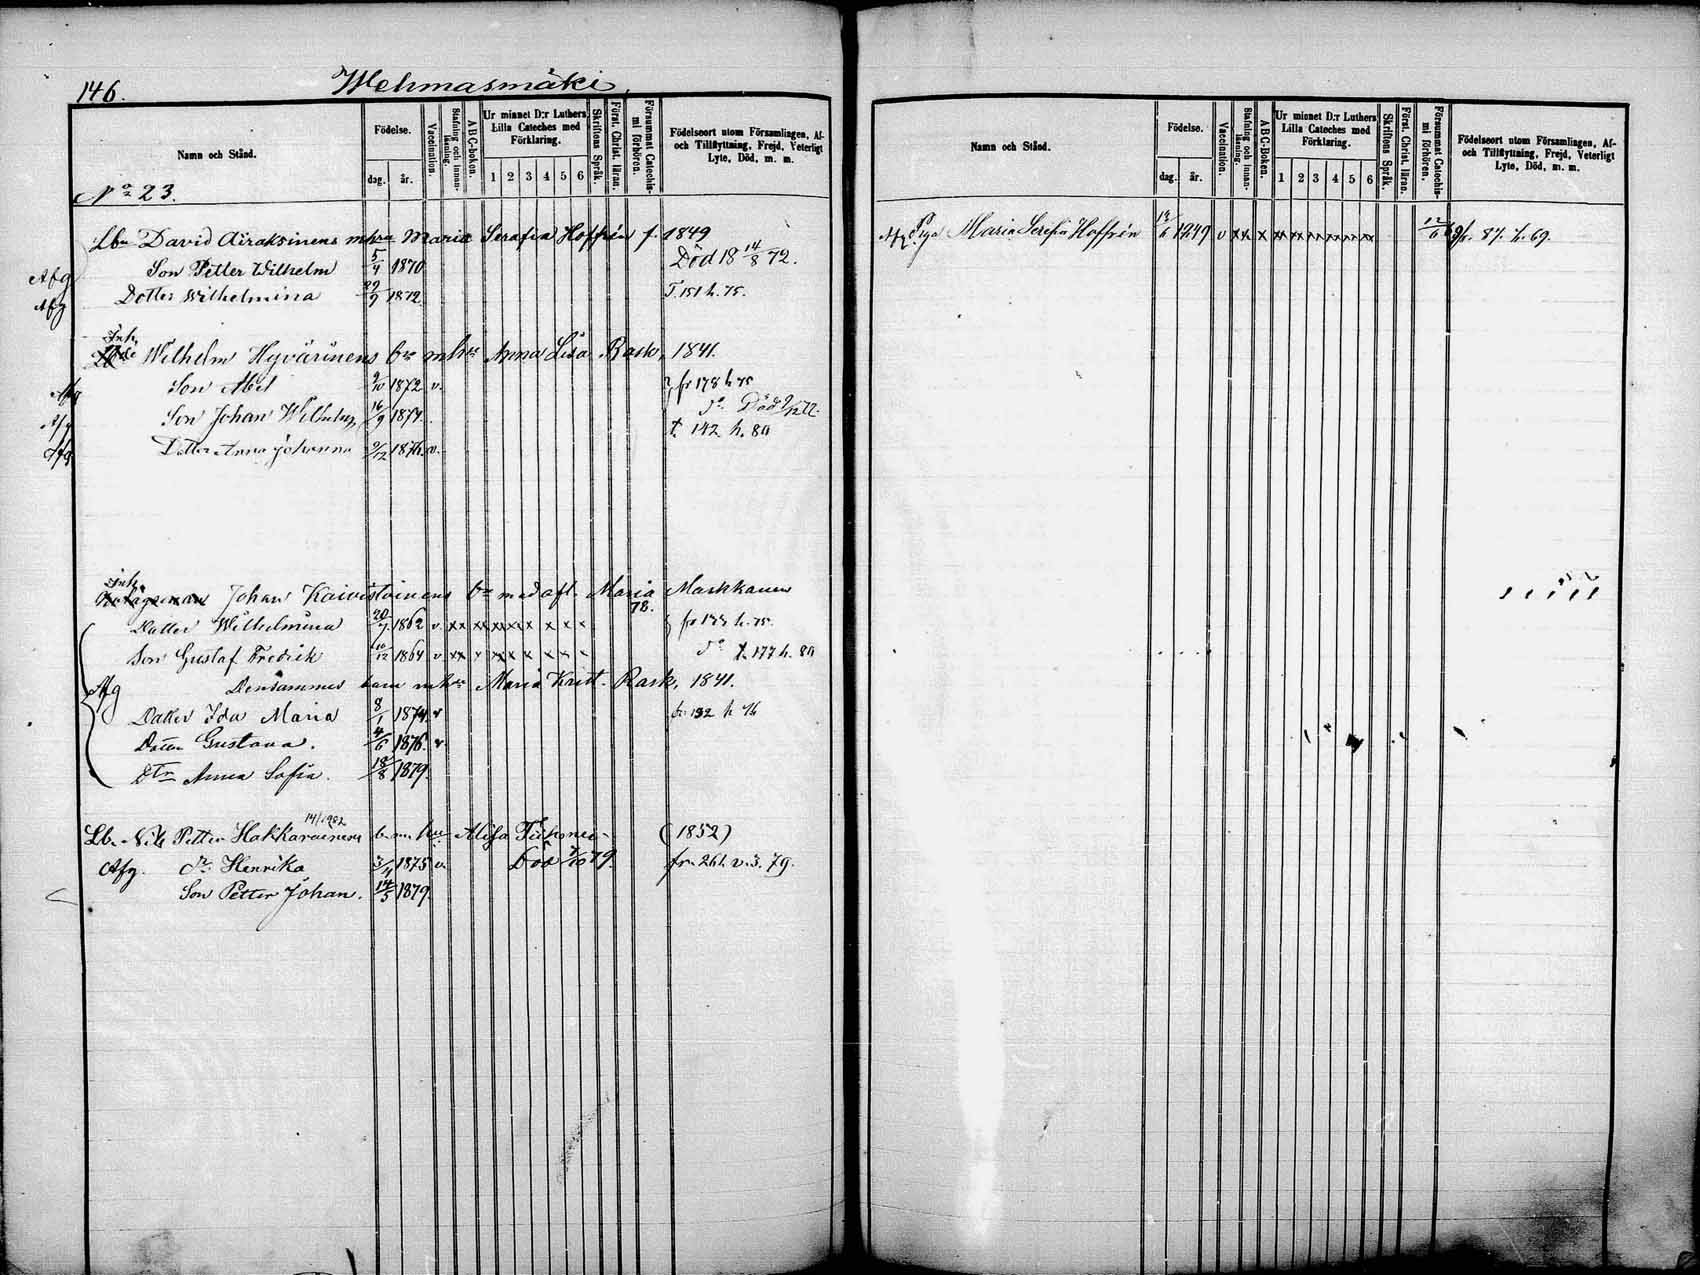 146.
Wehmasmäki.
Namn och Stånd.
Födelse.
dag.
år.
Vaccination.
Stafning och innanläsning.
ABC-boken.
Ur minnet D:r Luthers Lilla Cateches med Förklaring.
1 2 3 4 5 6
Skriftens Språk.
Först. Christ. läran.
Försummat Catechismi förhören.
Födelseort utom Församlingen, Af- och Tillflyttning, Frejd, Veterligt Lyte, Död, m. m.
No 23.
Lbn David Airaksinens mhra Maria Serafia Hoffrén f. 1849
Afg Son Petter Wilhelm 5/4 1870. Död 18 14/8 72.
Afg Dotter Wilhelmina 29/9 1872. T. 151 h. 75.
Inh. Wilhelm Hyvärinens bn mhu Anna Lisa Rask, 1841.
Afg Son Abel 9/10 1872 v. fr 178 h 75
Afg Son Johan Wilhelm 16/9 1874. do Död
Afg Dotter Anna Johanna 2/12 1876. v. t. 142 h. 80
Inh. Johan Kaivistoinens bn med afl. Maria Markkanen
78.
Dotter Wilhelmina 20/7 1862 v. x x x x x x x x x h. 75.
Son Gustaf Fredrik 10/12 1864 v x x x x x x x x x do t. 177 h. 80
Afg Densammes barn mhu Maria Krist. Rask, 1841.
Dotter Ida Maria 8/1 1874. v fr 132 h 76
Dotter Gustava. 4/6 1876. v
Dtr Anna Sofia. 18/8 1879.
14/1982
Lb. Nils Petter Hakkarainens b. m. hu Alisa (1852)
Afg. Dr Henrika 3/4 1875 v. Död 7/10 79. fr. 261. v. 3. 79.
Son Petter Johan. 14/5 1879.
Namn och Stånd.
Födelse.
dag.
år.
Vaccination.
Stafning och innanläsning.
ABC-Boken.
Ur minnet D:r Luthers Lilla Cateches med Förklaring.
1 2 3 4 5 6
Skriftens Språk.
Först. Christ. läran.
Försummat Catechismi förhören.
Födelseort utom Församlingen, Af- och Tillflyttning, Frejd, Veterligt Lyte, Död, m. m.
Afg Piga Maria Serefia Hoffrén 1849 v x x x x x x x x x fr. 87. h. 69.